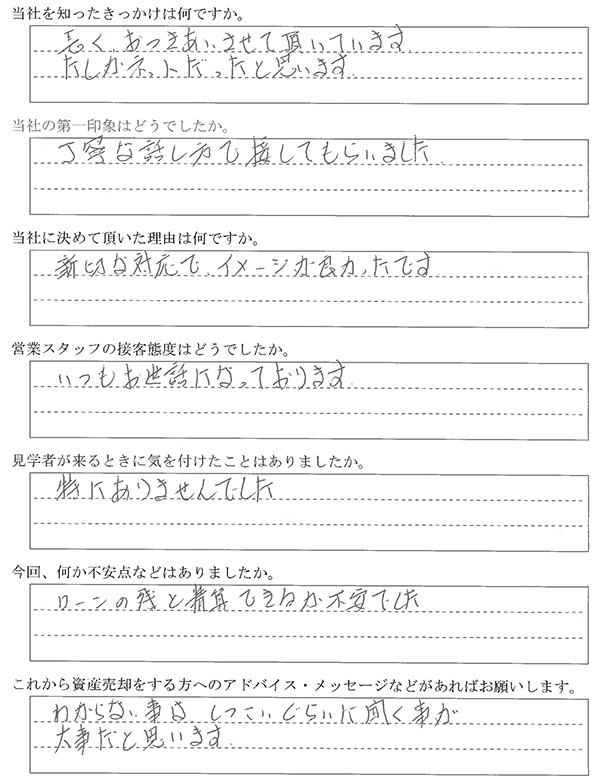 当社を知ったきっかけは何ですか。
長く、おつきあいさせて頂いています
たしかネットだったと思います。
当社の第一印象はどうでしたか。
丁寧な話し方で接してもらいました。
当社に決めて頂いた理由は何ですか。
新切な対応で、イメージが良かったです
営業スタッフの接客態度はどうでしたか。
いつもお世話になっております。
見学者が来るときに気を付けたことはありましたか。
特にありませんでした
今回、何か不安点などはありましたか。
ローンの残と精算できるか不安でした
これから資産売却をする方へのアドバイス・メッセージなどがあればお願いします。
わからない事は、しつこいぐらいに聞く事が
大事だと思います。